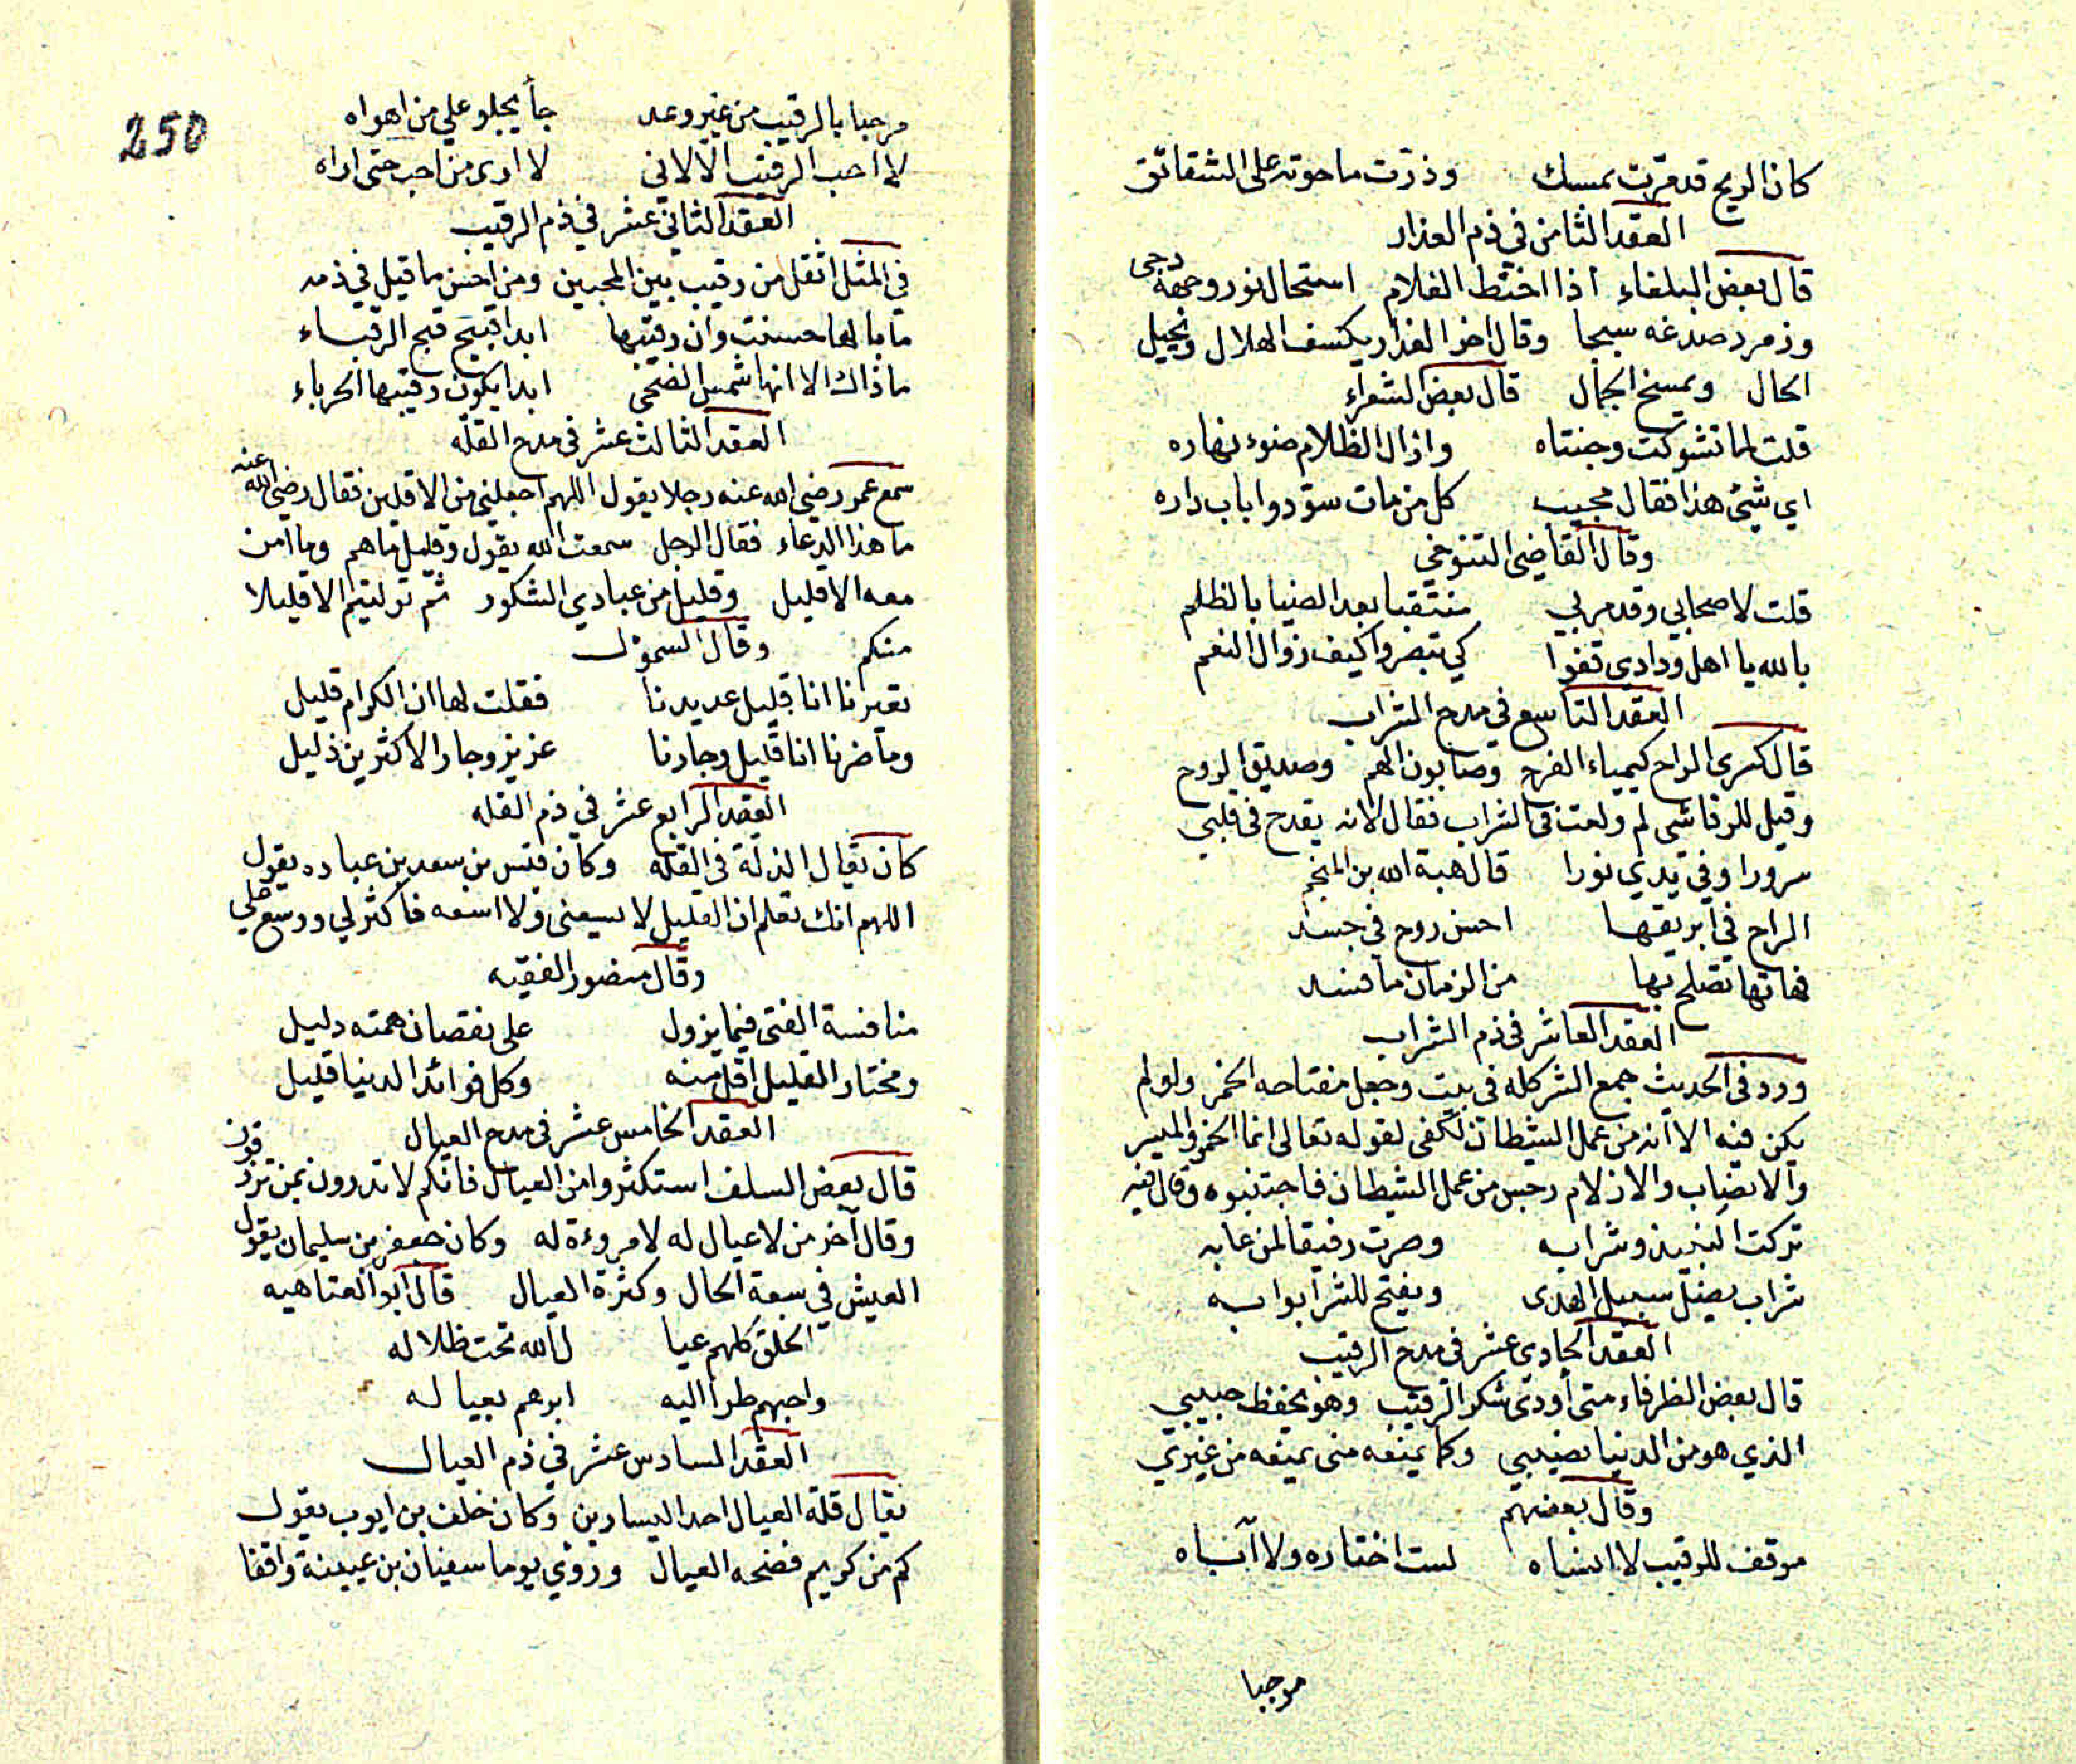 كان الريح قد مرت بمسك وذرت ما حوته على الشقائق
العقد الثامن في ذم العذار
قال بعض البلغاء اذا اختط الغلام استحال نور وجهه دجى
وزمرد صدغه سبجا وقال اخر العذار يكسف الهلال ويحيل
الحال ويمسخ الجمال قال بعض الشعراء
قلت لما تشوكت وجنتاه وازال الظلام ضوء نهاره
اي شئ هذا فقال مجيب كل من مات سودوا باب داره
وقال القاضي التنوخي
قلت لاصحابي وقد مر بي منتقبا بعد الضيا بالظلم
بالله يا اهل ودادى قفوا كي تبصروا كيف زوال النعم
العقد التاسع في مدح الشراب
قال كسرى الراح كيمياء الفرح وصابون الهم وصديق الروح
وقيل للرقاشي لم ولعت في الشراب فقال لانه يقدح في قلبي
سرورا وفي يدي نورا قال هبة الله بن المنجم
الراح في ابريقها احسن روح في جسد
فهاتها تصلح بها من الزمان ما فسد
العقد العاشر في ذم الشراب
ورد في الحديث جمع الشر كله في بيت وجعل مفتاحه الخمر ولو لم
يكن فيه الا انه من عمل الشيطان لكفى لقوله تعالى انما الخمر والميسر
والانصاب والازلام رجس من عمل الشيطان فاجتنبوه وقال فيه
تركت النبيذ وشرابه وصرت رفيقا لمن عابه
شراب يضل سبيل الهدى ويفتح للشر ابوابه
العقد الحادي عشر في مدح الرقيب
قال بعض الظرفاء متى أودى شكر الرقيب وهو يحفظ حبيبي
الذي هو من الدنيا نصيبي وكما يمنعه منى يمنعه من غيري
وقال بعضهم
موقف للرقيب لا انساه لست اختاره ولا آباه
مرحبا
250
مرحبا بالرقيب من غير وعد جأ يجلو علي من اهواه
لا احب الرقيب الا لاني لا ارى من احب حتى اراه
العقد الثاني عشر في ذم الرقيب
في المثل اثقل من رقيب بين المحبين ومن احسن ما قيل في ذمه
ما بالها حسنت وان رقيبها ابدا قبيح قبح الرقباء
ما ذاك الا انها شمس الضحى ابدا يكون رقيبها الحرباء
العقد الثالث عشر في مدح القله
سمع عمر رضي الله عنه رجلا يقول اللهم اجعلني من الاقلين فقال رضي الله عنه
ما هذا الدعاء فقال الرجل سمعت الله يقول وقليل ما هم وما امن
معه الا قليل وقليل من عبادي الشكور ثم توليتم الا قليلا
منكم وقال السموئل
تعيرنا انا قليل عديدنا فقلت لها ان الكرام قليل
وما ضرنا انا قليل وجارنا عزيز وجار الاكثرين ذليل
العقد الرابع عشر في ذم القله
كان يقال الذلة في القله وكان قيس بن سعد بن عباده يقول
اللهم انك تعلم ان القليل لا يسعنى ولا اسعه فاكثر لي ووسع علي
وقال منصور الفقيه
منافسة الفتى فيما يزول على نقصان همته دليل
ومختار القليل اقل منه وكل فوائد الدنيا قليل
العقد الخامس عشر في مدح العيال
قال بعض السلف استكثروا من العيال فانكم لا تدرون بمن ترزقون
وقال آخر من لا عيال له لا مروءة له وكان جعفر بن سليمان يقول
العيش في سعة الحال وكثرة العيال قال ابو العتاهيه
الخلق كلهم عيا ل الله تحت ظلاله
واحبهم طرا اليه ابرهم بعياله
العقد السادس عشر في ذم العيال
يقال قلة العيال احد اليسارين وكان خلف بن ايوب يقول
كم من كريم فضحه العيال وروي يوما سفيان بن عيينة واقفا